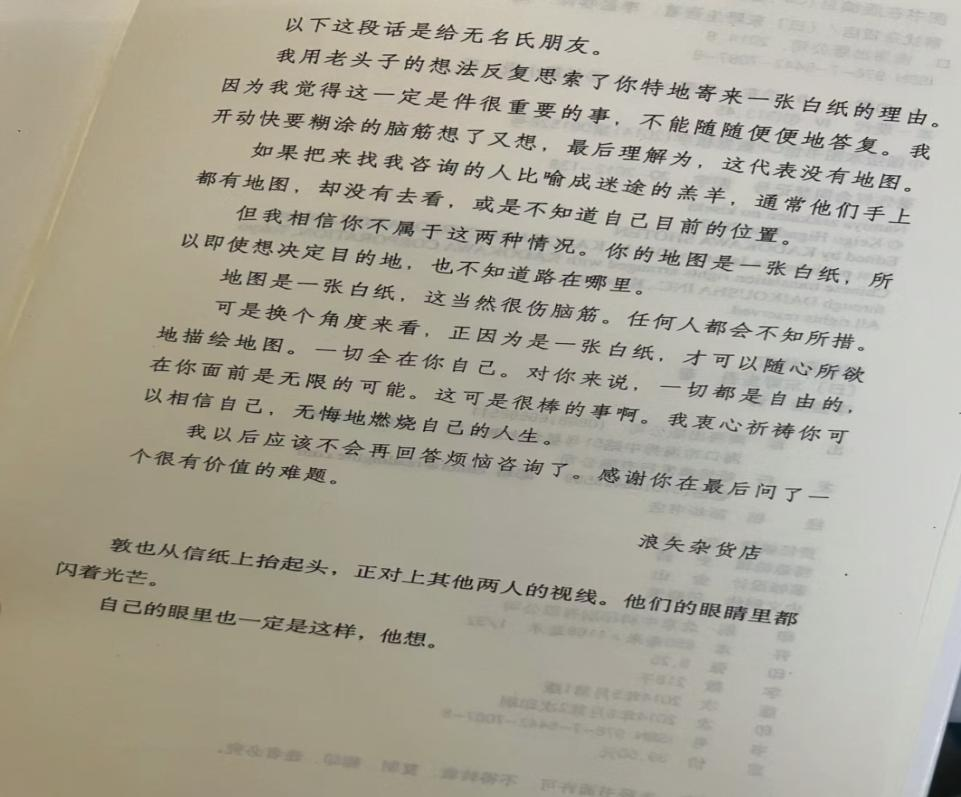 以下这段话是给无名氏朋友。
我用老头子的想法反复思索了你特地寄来一张白纸的理由。
因为我觉得这一定是件很重要的事，不能随随便便地答复。我
开动快要糊涂的脑筋想了又想，最后理解为，这代表没有地图。
如果把来找我咨询的人比喻成迷途的羔羊，通常他们手上
都有地图，却没有去看，或是不知道自己目前的位置。
但我相信你不属于这两种情况。你的地图是一张白纸，所
以即使想决定目的地，也不知道路在哪里。
地图是一张白纸，这当然很伤脑筋。任何人都会不知所措。
可是换个角度来看，正因为是一张白纸，才可以随心所欲
地描绘地图。一切全在你自己。对你来说，一切都是自由的，
在你面前是无限的可能。这可是很棒的事啊。我衷心祈祷你可
以相信自己，无悔地燃烧自己的人生。
我以后应该不会再回答烦恼咨询了。感谢你在最后问了一
个很有价值的难题。
浪矢杂货店
敦也从信纸上抬起头，正对上其他两人的视线。他们的眼睛里都
闪着光芒。
自己的眼里也一定是这样，他想。